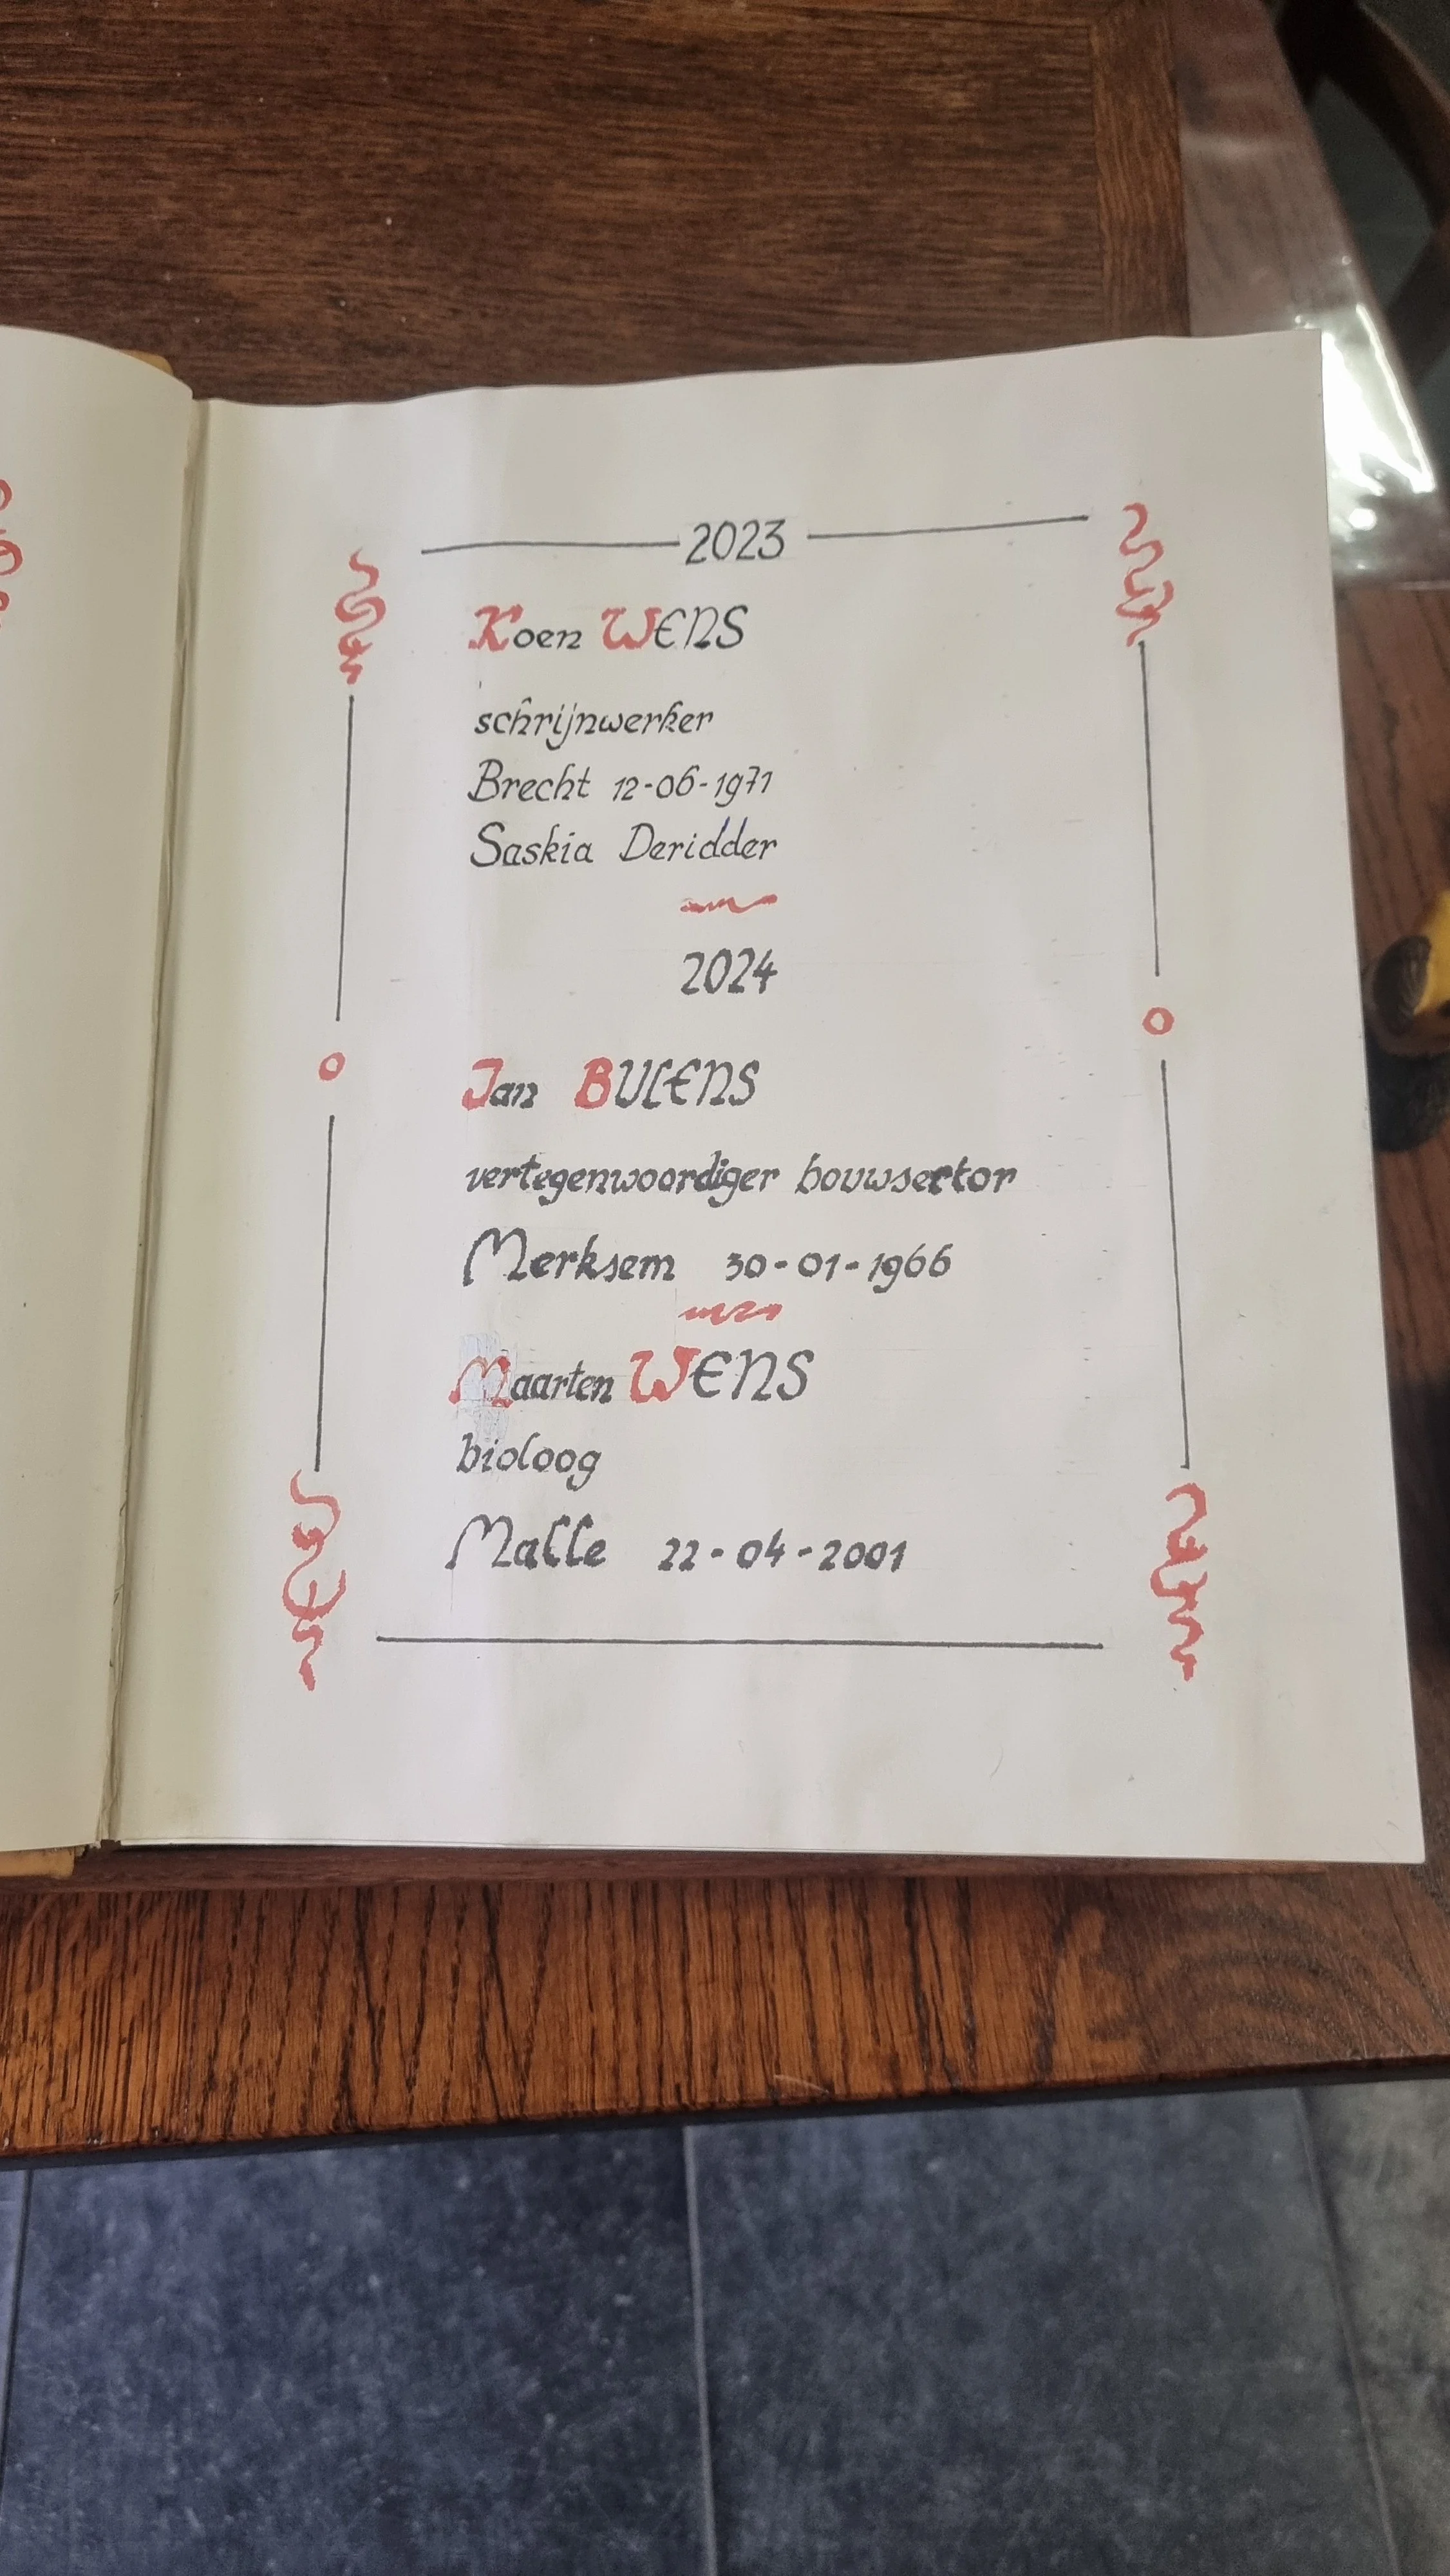 2023
Koen WENS
schrijnwerker
Brecht 12-06-1971
Saskia Deridder
2024
Jan BULENS
vertegenwoordiger bouwsector
Merksem 30-01-1966
Maarten WENS
bioloog
Malle 22-04-2001